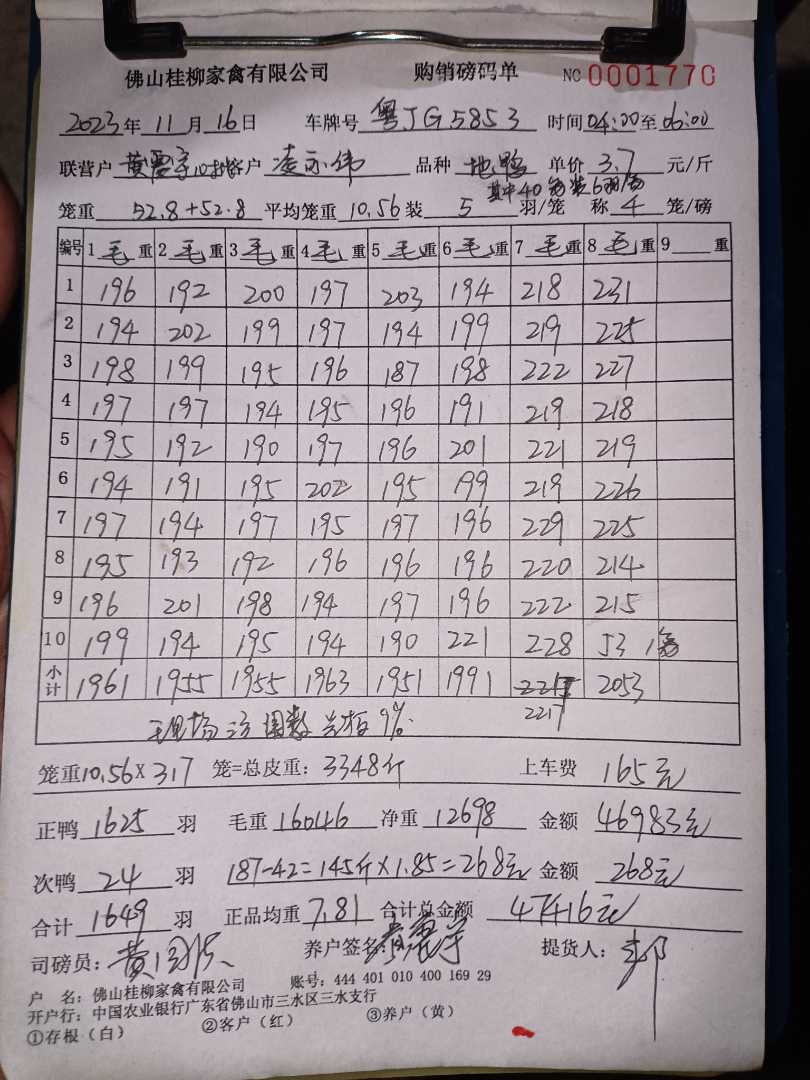 佛山桂柳家禽有限公司 购销磅码单 NO 0001770
2023年 11月 16日 车牌号 粤JG5853 时间 04:00至 06:00
联营户 黄 客户 凌 伟 品种 地鸭 单价 3.7 元/斤
其中40笼装6羽/笼
笼重 52.8+52.8 平均笼重 10.56 装 5 羽/笼 称 4 笼/磅
编号 1毛重 2毛重 3毛重 4毛重 5毛重 6毛重 7毛重 8毛重 9 重
1 196 192 200 197 203 194 218 231
2 194 202 199 197 194 199 219 225
3 198 199 195 196 187 198 222 227
4 197 197 194 195 196 191 219 218
5 195 192 190 197 196 201 221 219
6 194 191 195 202 195 199 219 226
7 197 194 197 195 197 196 229 225
8 195 193 192 196 196 196 220 214
9 196 201 198 194 197 196 222 215
10 199 194 195 194 190 221 228 53 1笼
小计 1961 1955 1955 1963 1951 1991 2053
2217
现场 9%
笼重10.56×317 笼=总皮重: 3348斤 上车费 165元
正鸭 1625 羽 毛重 16046 净重 12698 金额 46983元
次鸭 24 羽 187-42=145斤×1.85=268元 金额 268元
合计 1649 羽 正品均重 7.81 合计总金额 47416元
司磅员: 黄 养户签名: 提货人:
户 名: 佛山桂柳家禽有限公司 账号: 444 401 010 400 169 29
开户行: 中国农业银行广东省佛山市三水区三水支行
①存根（白） ②客户（红） ③养户（黄）